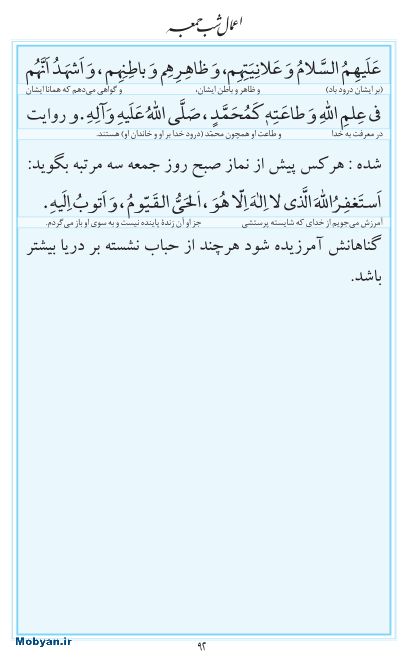 اعمال شب جمعه
عَلَیهِمُ السَّلامُ وَ عَلانِیَتِهِم، وَ ظاهِرِهِم وَ باطِنِهِم، وَ اَشهَدُ اَنَّهُم
(بر ایشان درود باد) و ظاهر و باطن ایشان، و گواهی می‌دهم که همانا ایشان
فی عِلمِ اللهِ وَ طاعَتِهِ کَمُحَمَّدٍ، صَلَّی اللهُ عَلَیهِ وَ آلِهِ. و روایت
در معرفت به خدا و طاعت او همچون محمّد (درود خدا بر او و خاندان او) هستند.
شده : هرکس پیش از نماز صبح روز جمعه سه مرتبه بگوید:
اَستَغفِرُ اللهَ الَّذی لا اِلهَ اِلّا هُوَ، اَلحَیُّ القَیّومُ، وَ اَتوبُ اِلَیهِ.
آمرزش می‌جویم از خدای که شایسته پرستشی جز او آن زندهٔ پاینده نیست و به سوی او باز می‌گردم.
گناهانش آمرزیده شود هرچند از حباب نشسته بر دریا بیشتر
باشد.
Mobyan.ir
۹۲